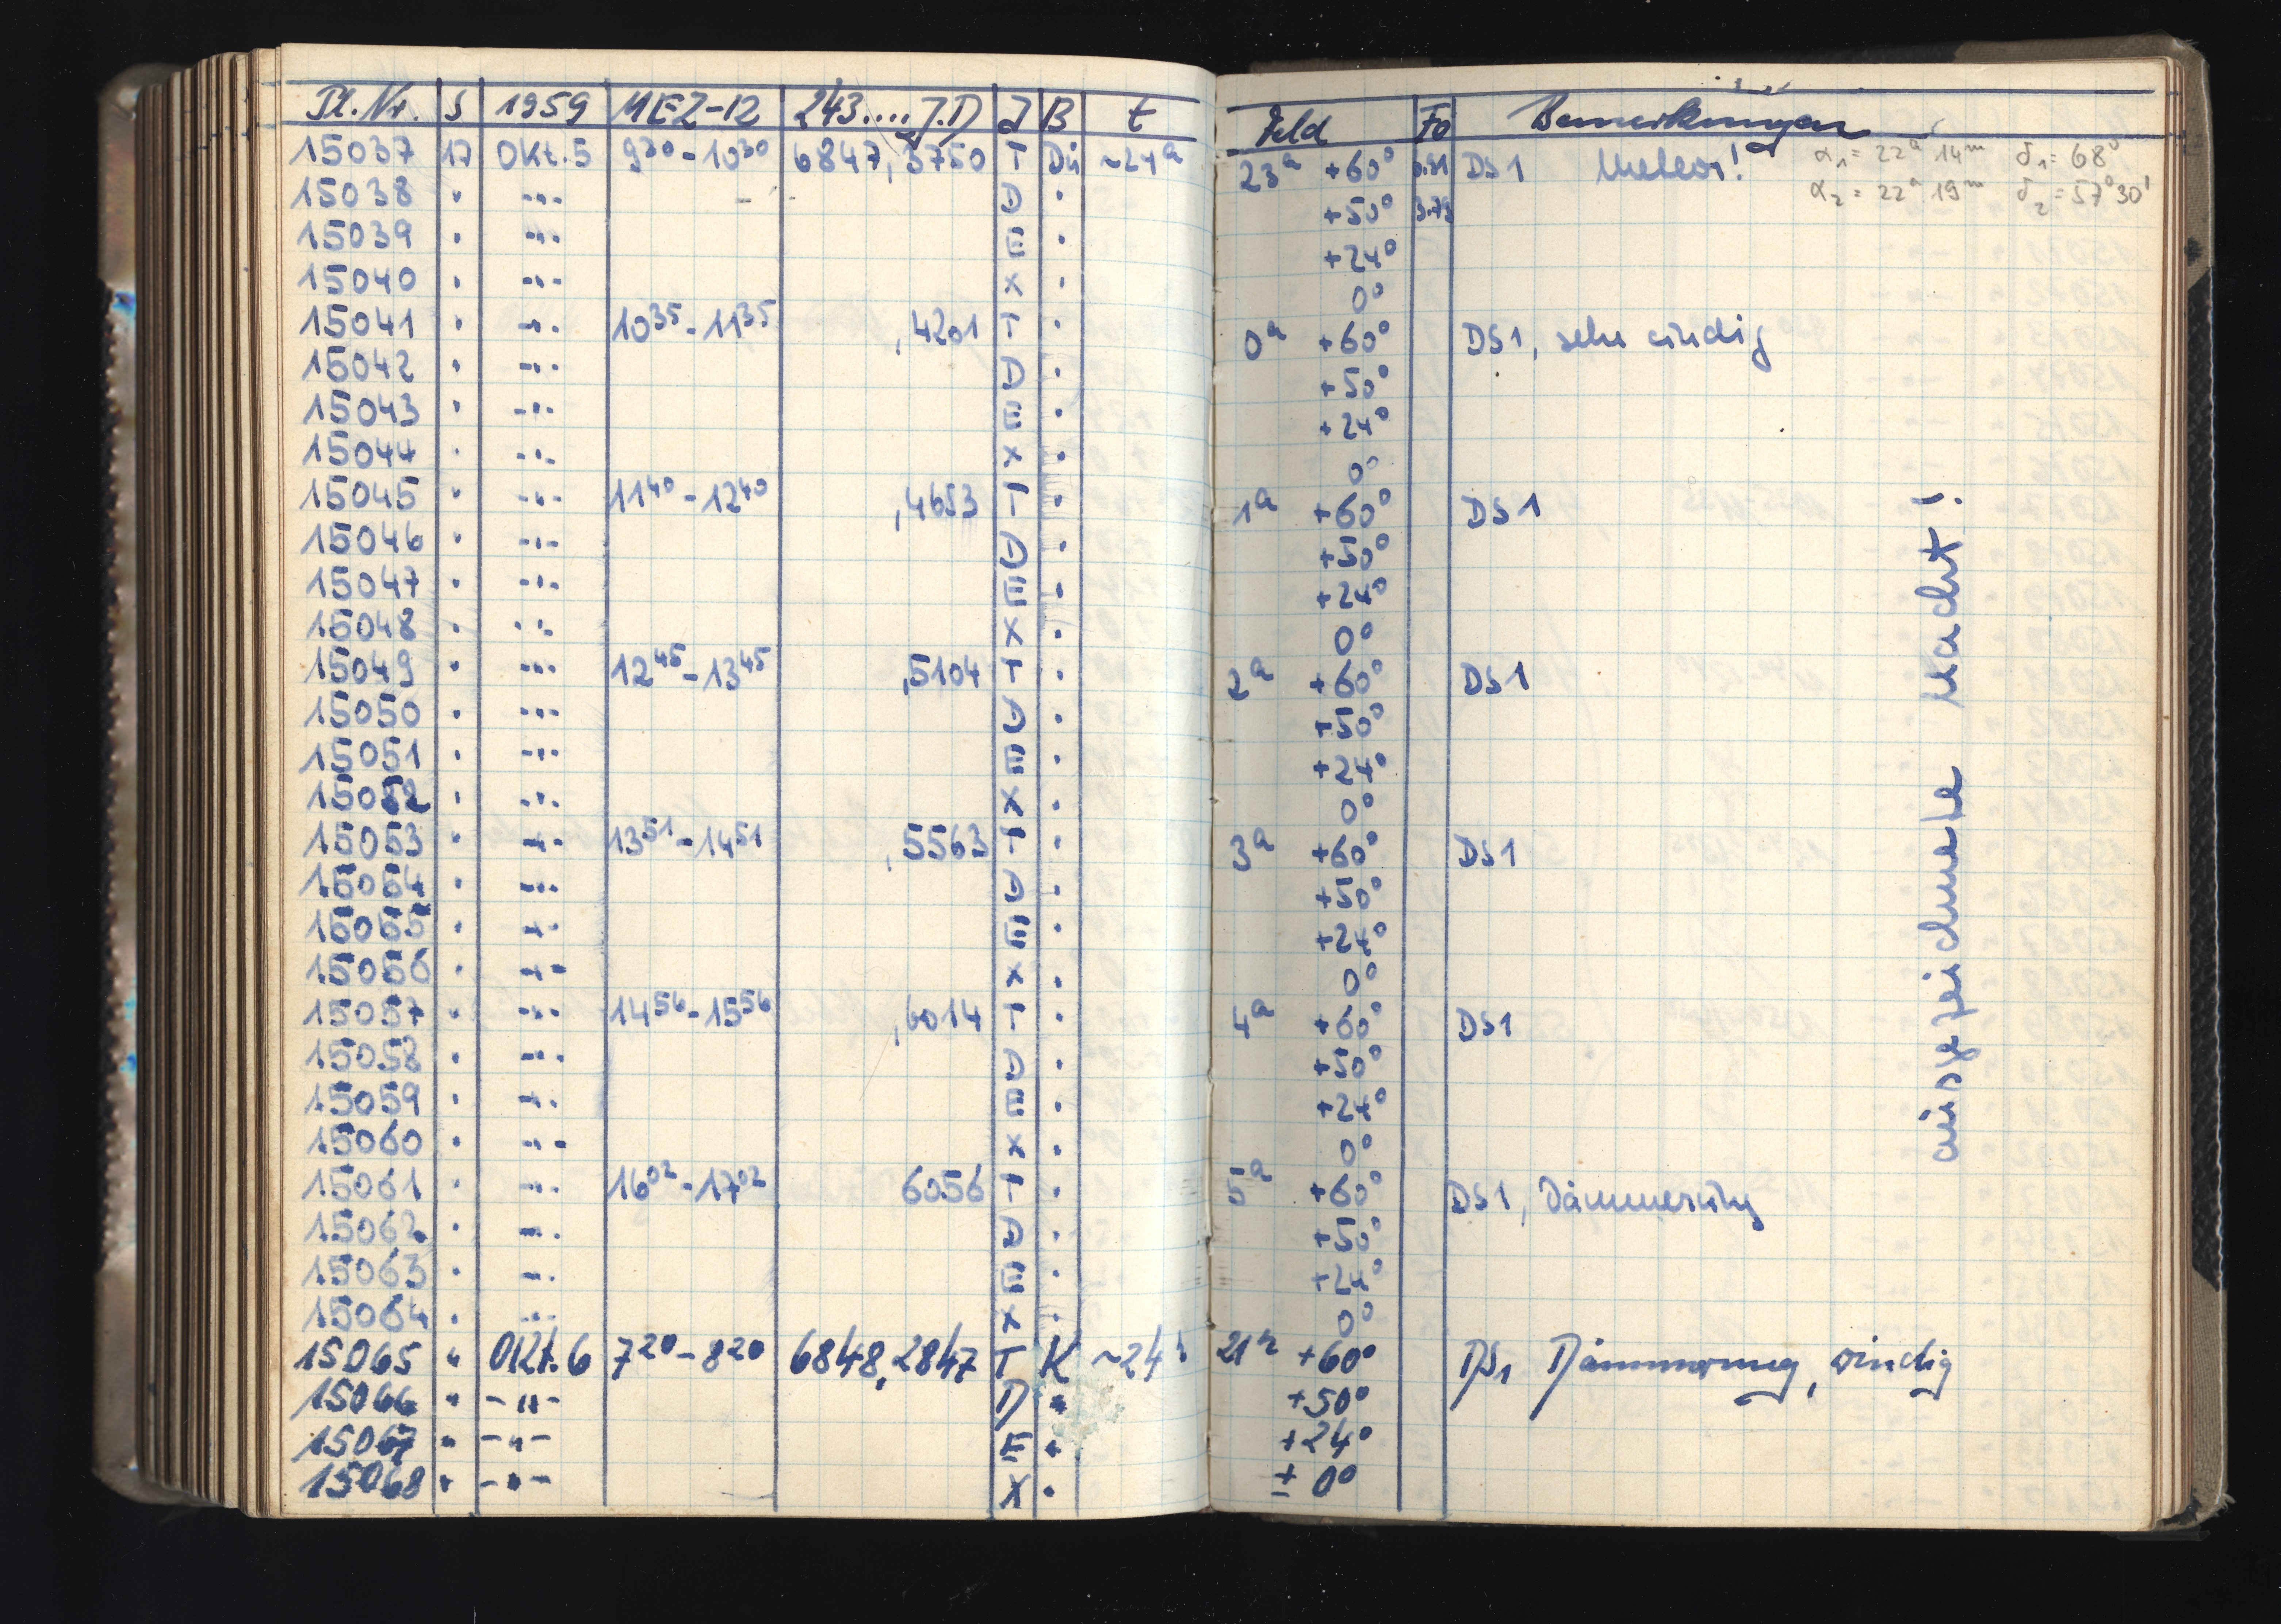 Pl. Nr. S 1959 MEZ-12 243.... J.D J B t Feld Fo Bemerkungen
15037 17 Okt. 5 9³⁰-10³⁰ 6847,3750 T Dü ~24ª 23ª +60° DS1 Meteor! α₁ = 22ª 14ᵐ δ₁ = 68°
15038 " -"- D " +50° α₂ = 22ª 19ᵐ δ₂ = 57°30'
15039 " -"- E " +24°
15040 " -"- X " 0°
15041 " -"- 10³⁵-11³⁵ ,4201 T " 0ª +60° DS1, sehr windig
15042 " -"- D " +50°
15043 " -"- E " +24°
15044 " -"- X " 0°
15045 " -"- 11⁴⁰-12⁴⁰ ,4653 T " 1ª +60° DS1
15046 " -"- D " +50°
15047 " -"- E " +24°
15048 " -"- X " 0°
15049 " -"- 12⁴⁵-13⁴⁵ ,5104 T " 2ª +60° DS1
15050 " -"- D " +50°
15051 " -"- E " +24°
15052 " -"- X " 0°
15053 " -"- 13⁵¹-14⁵¹ ,5563 T " 3ª +60° DS1
15054 " -"- D " +50°
15055 " -"- E " +24°
15056 " -"- X " 0°
15057 " -"- 14⁵⁶-15⁵⁶ ,6014 T " 4ª +60° DS1
15058 " -"- D " +50°
15059 " -"- E " +24°
15060 " -"- X " 0°
15061 " -"- 16⁰²-17⁰² 6056 T " 5ª +60° DS1, Dämmerung
15062 " -"- D " +50°
15063 " -"- E " +24°
15064 " -"- X " 0°
15065 " Okt. 6 7²⁰-8²⁰ 6848,2847 T K ~24ʰ 21ʰ +60° DS1 Dämmerung, windig
15066 " -"- D " +50°
15067 " -"- E " +24°
15068 " -"- X " ±0°
ausgezeichnete Nacht!